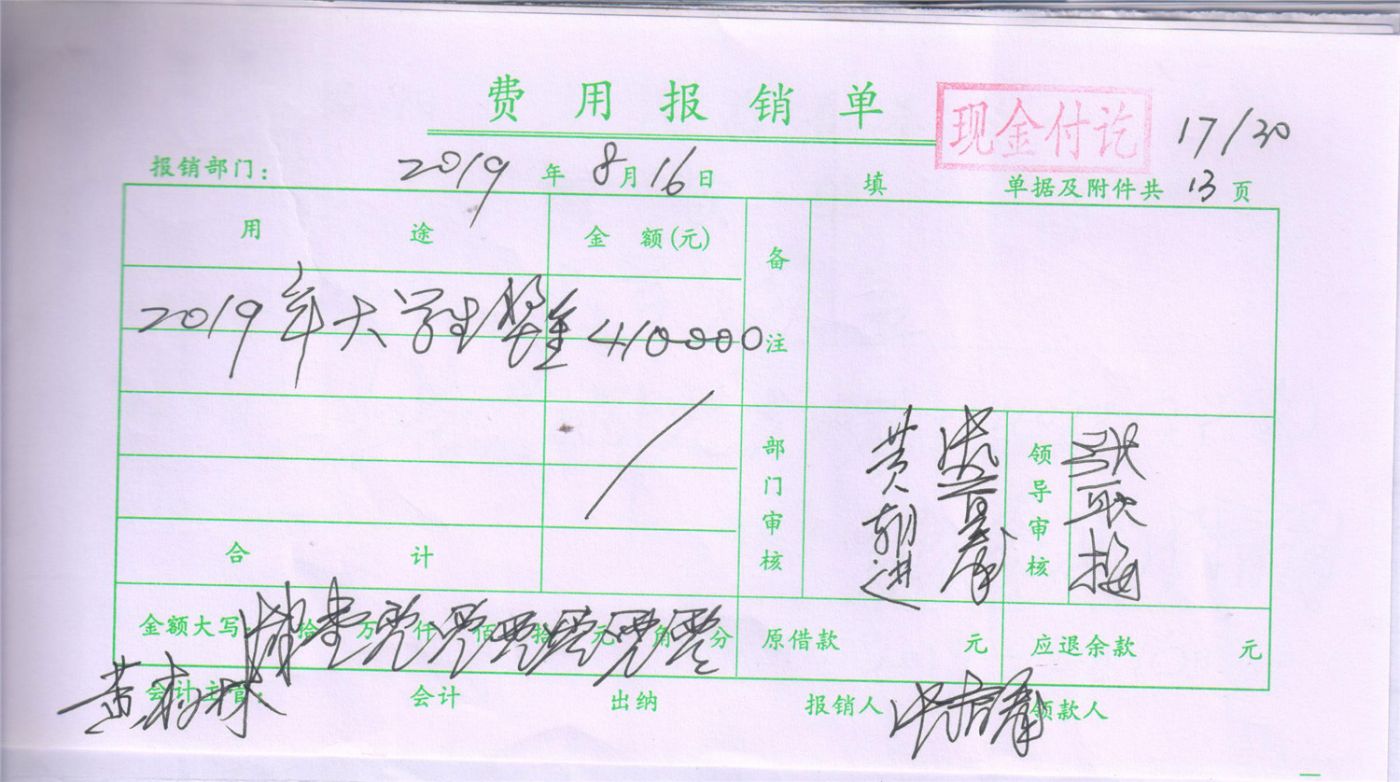 费用报销单
现金付讫
17/30
报销部门： 2019 年 8 月 16 日 填 单据及附件共 13 页
用途 金额(元) 备注
2019年大学生奖金 410000
部门审核 黄朝进 领导审核
合计
金额大写 拾 万 仟 佰 拾 元 角 分 原借款 元 应退余款 元
会计主管： 会计 出纳 报销人 领款人